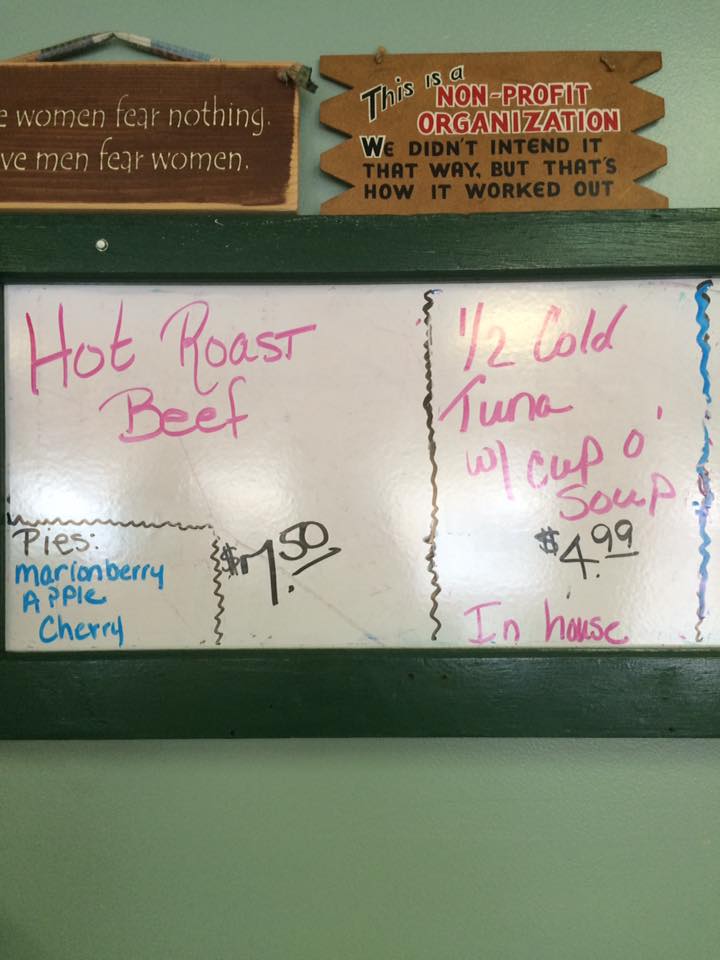 e women fear nothing.
ve men fear women.
This is a
NON-PROFIT
ORGANIZATION
WE DIDN'T INTEND IT
THAT WAY, BUT THAT'S
HOW IT WORKED OUT
Hot Roast
Beef
$7.50
Pies:
marionberry
Apple
Cherry
1/2 Cold
Tuna
w/ cup o'
soup
$4.99
In house